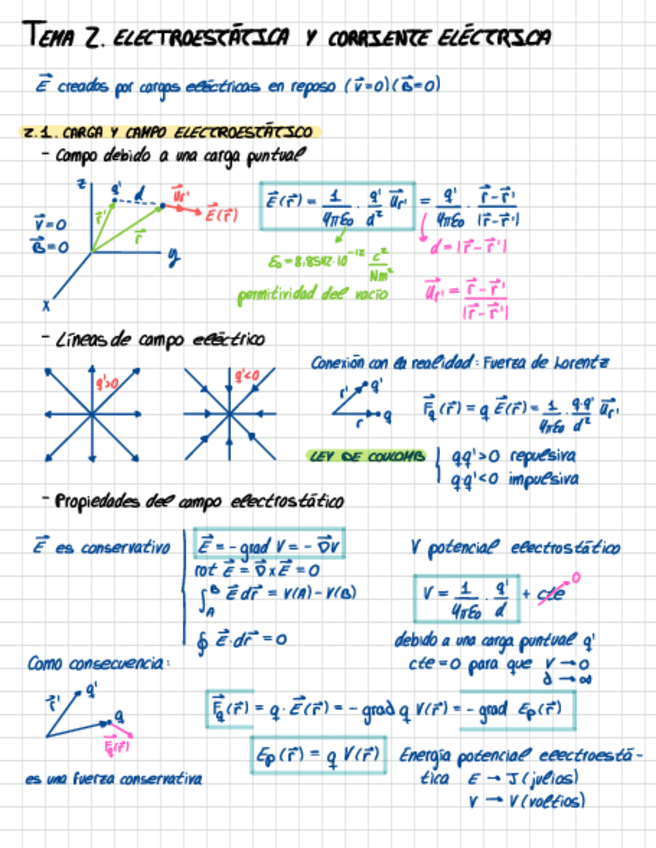 TEMA 2. ELECTROESTÁTICA Y CORRIENTE ELÉCTRICA
E⃗ creados por cargas eléctricas en reposo (v⃗=0)(B⃗=0)
2.1. CARGA Y CAMPO ELECTROESTÁTICO
- Campo debido a una carga puntual
z q' d u⃗r' E⃗(r⃗) r⃗' r⃗ y x
v⃗=0
B⃗=0
E⃗(r⃗) = 1/4πε₀ · q'/d² u⃗r' = q'/4πε₀ · r⃗-r⃗'/|r⃗-r⃗'|
d=|r⃗-r⃗'|
ε₀=8,8542·10⁻¹² C²/Nm²
permitividad del vacío
u⃗r' = r⃗-r⃗'/|r⃗-r⃗'|
- Líneas de campo eléctrico
q'>0
q'<0
Conexión con la realidad: Fuerza de Lorentz
r' q' r q
F⃗q(r⃗) = q E⃗(r⃗) = 1/4πε₀ · q·q'/d² u⃗r'
LEY DE COULOMB
qq'>0 repulsiva
q·q'<0 impulsiva
- Propiedades del campo electrostático
E⃗ es conservativo
E⃗ = - grad V = - ∇⃗V
rot E⃗ = ∇⃗xE⃗ = 0
∫_A^B E⃗dr⃗ = V(A)-V(B)
∮ E⃗·dr⃗ = 0
V potencial electrostático
V = 1/4πε₀ · q'/d + cte 0
debido a una carga puntual q'
cte=0 para que V→0
d→∞
Como consecuencia:
r⃗' q' q F⃗q(r⃗)
F⃗q(r⃗) = q·E⃗(r⃗) = - grad q V(r⃗) = - grad Ep(r⃗)
Ep(r⃗) = q V(r⃗)
Energía potencial electroestá-
tica E → J (julios)
V → V (voltios)
es una fuerza conservativa